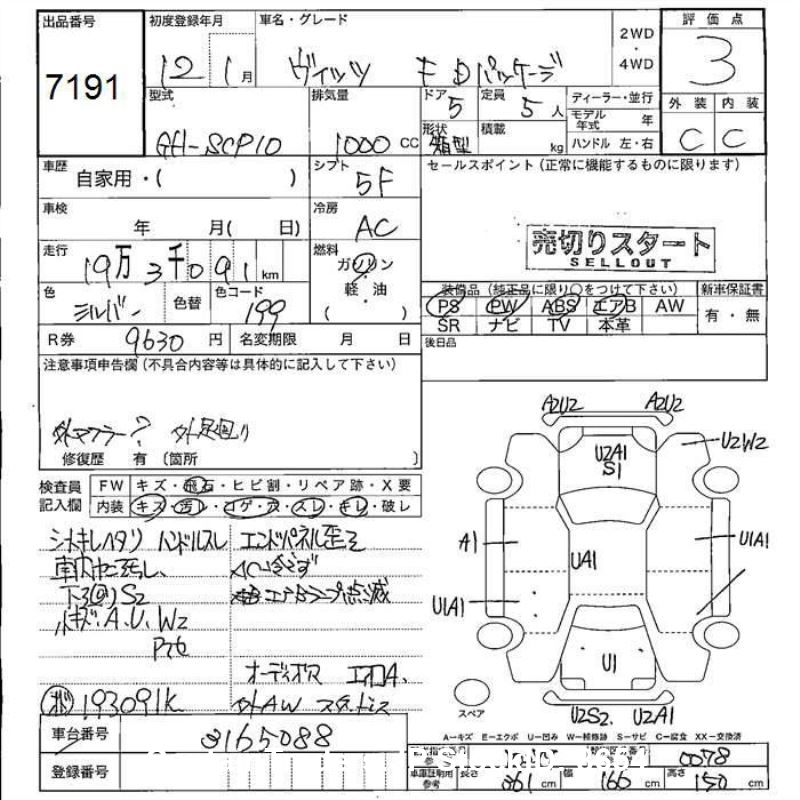 出品番号 初度登録年月 車名・グレード 評価点
7191 12 1月 ヴィッツ F Dパッケージ 2WD・4WD 3
型式 排気量 ドア 定員 ディーラー・並行 外装 内装
GH-SCP10 1000 CC 5 5人 モデル年式 年 C C
形状 箱型 積載 kg ハンドル 左・右
車歴 自家用・( ) シフト 5F セールスポイント(正常に機能するものに限ります)
車検 年 月( 日) 冷房 AC
売切りスタート
SELLOUT
走行 19万3千091km 燃料 ガソリン
軽・油
( )
色 シルバー 色替 色コード 199
装備品(純正品に限り○をつけて下さい) 新車保証書
PS PW ABS エアB AW 有・無
SR ナビ TV 本革
R券 9630円 名変期限 月 日 後日品
注意事項申告欄(不具合内容等は具体的に記入して下さい)
外マフラー? 外足回り
修復歴 有 〔箇所 〕
検査員 FW キズ・飛石・ヒビ割・リペア跡・X要
記入欄 内装 キズ・汚レ・コゲ・穴・スレ・キレ・破レ
シートキレヘタリ ハンドルスレ エンドパネル歪ミ
下回りS2 エアBランプ点滅
キズ.A.U.W2
オーディオレス エアロA.
193091K 外AW スタットレス
A2U2 A2U2
U2A1
S1
U2W2
A1 UA1 U1A1
U1A1
U1
スペア U2S2. U2A1
A-キズ E-エクボ U-凹み W-補修跡 S-サビ C-腐食 XX-交換済
車台番号 3165088
0078
登録番号 車庫証明用参考 長さ 361cm 幅 166cm 高さ 150cm